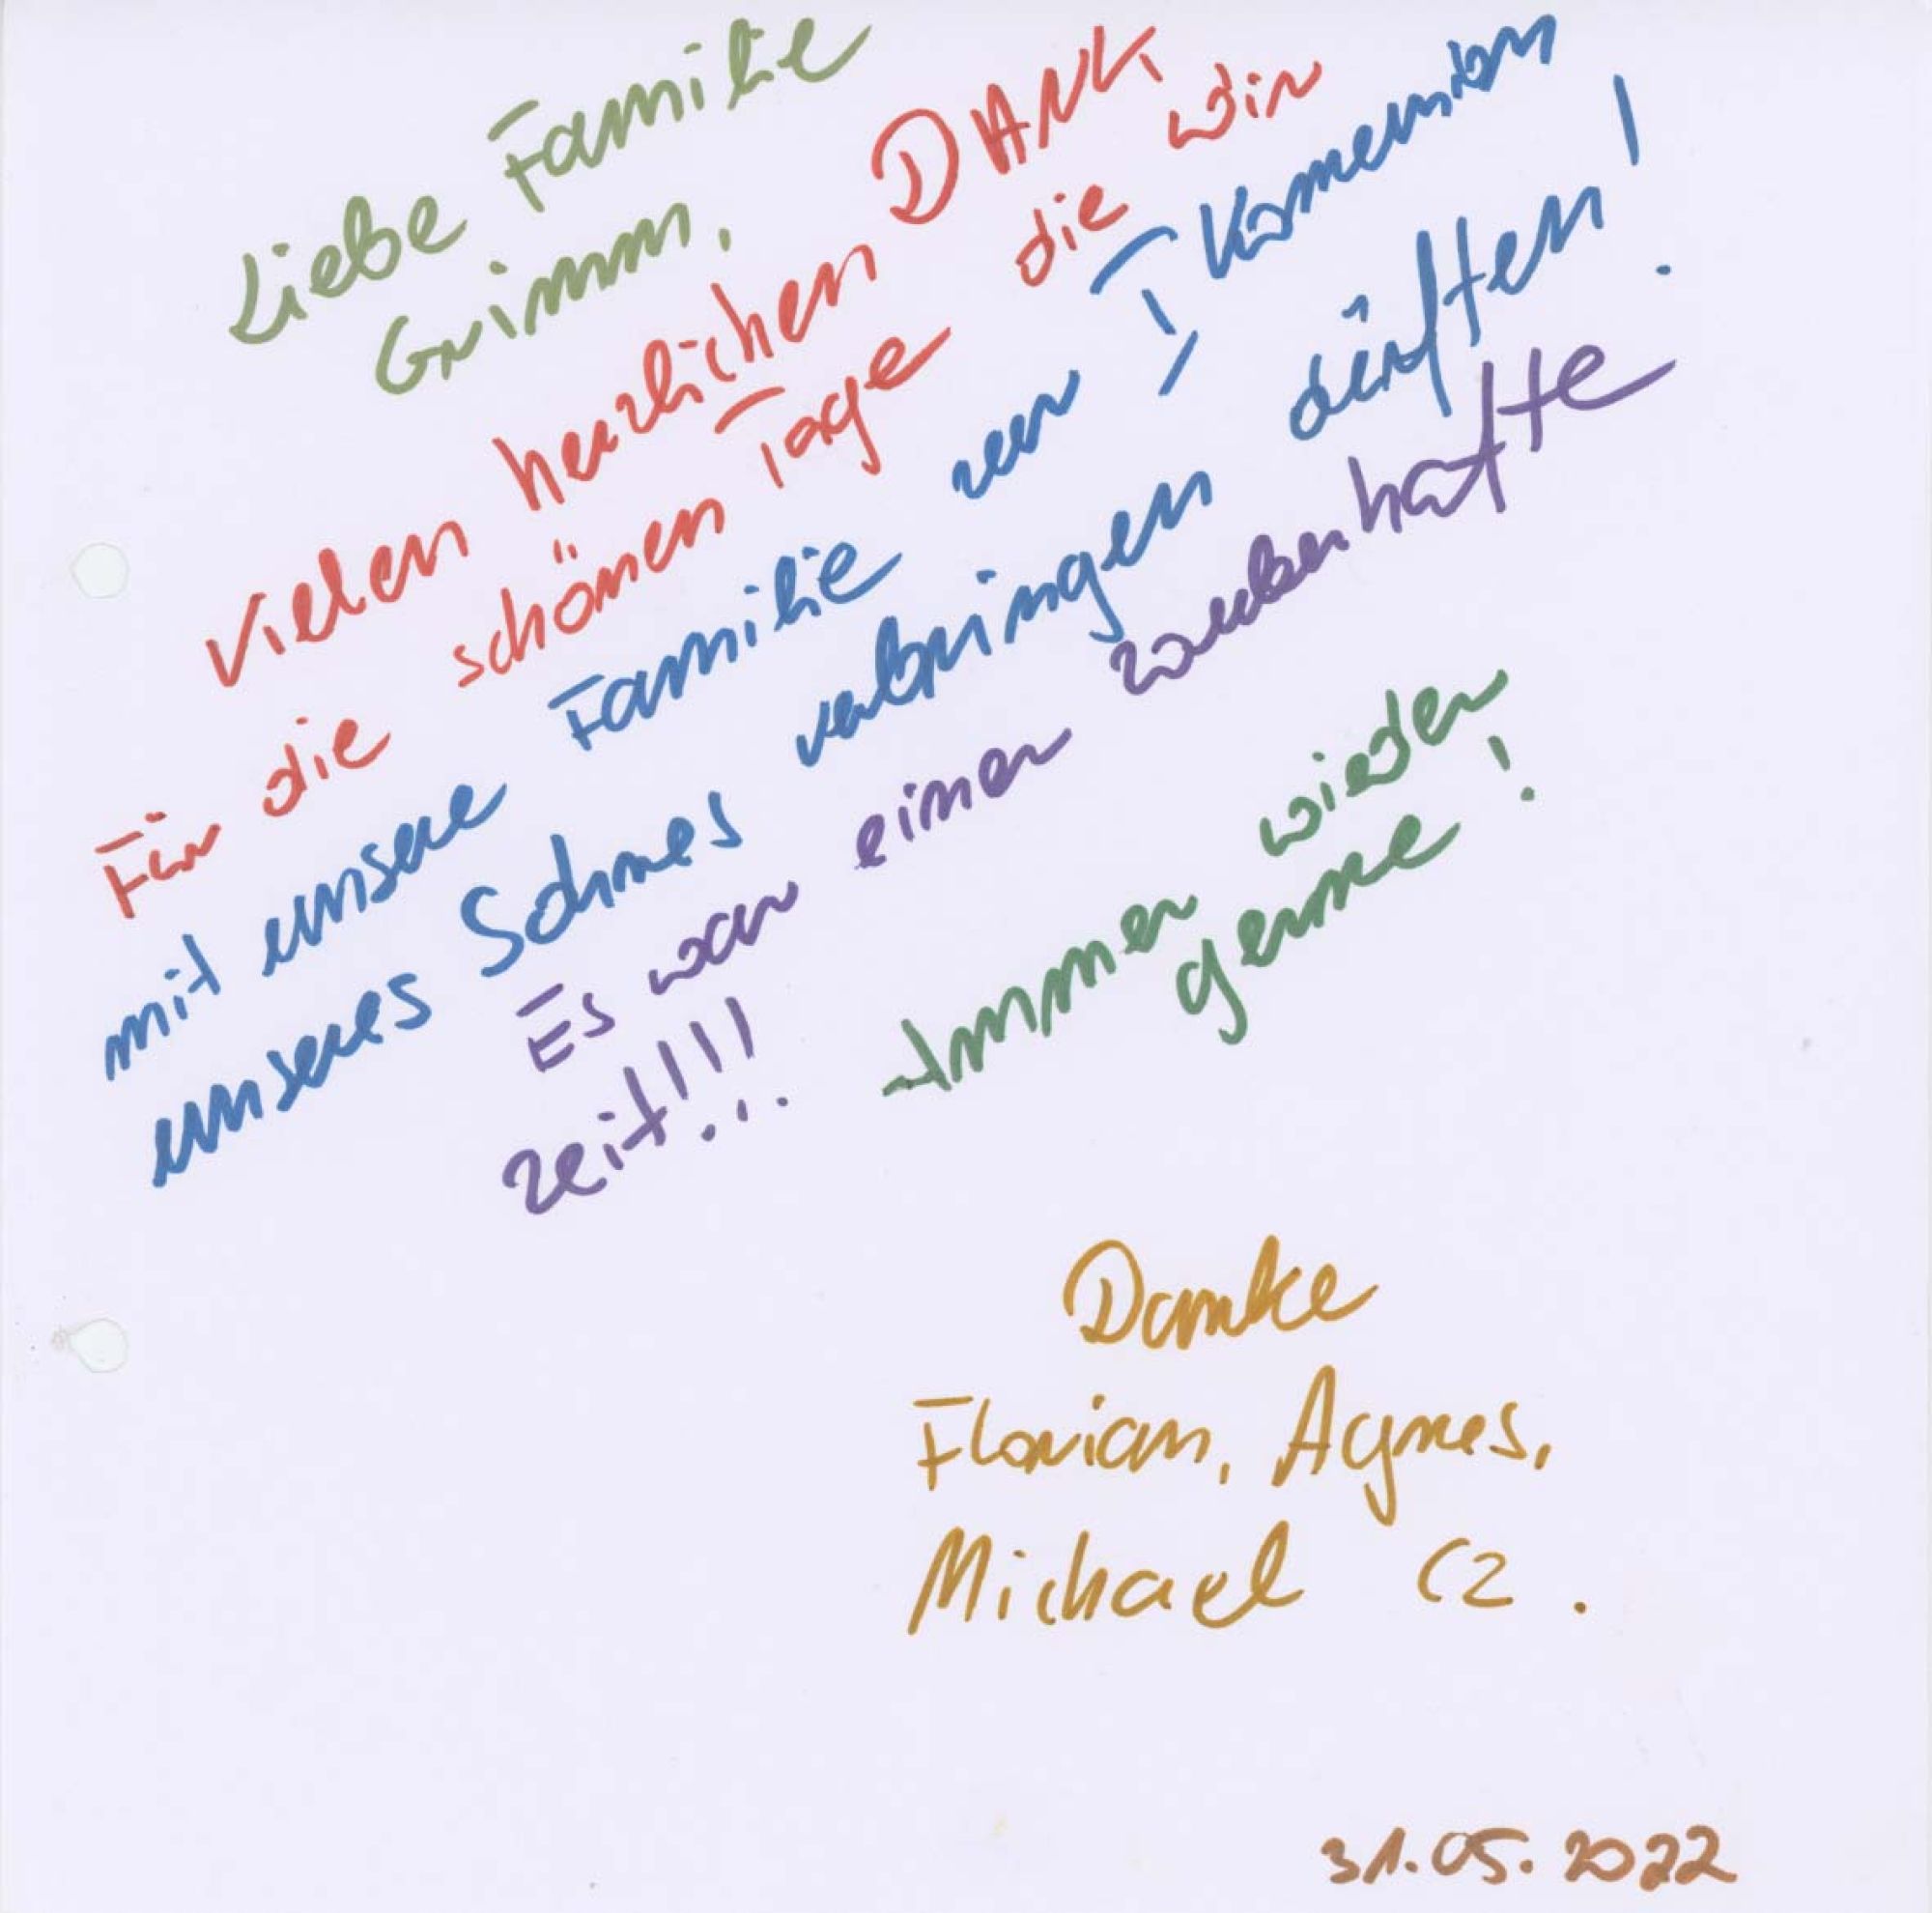 Liebe Familie
Grimm,
Vielen herzlichen DANK
Für die schönen Tage die wir
mit unsere Familie zur I Komunion
unseres Sohnes verbringen dürften!
Es war einer zauberhafte
zeit!!!
Immer wieder
gerne!
Danke
Florian, Agnes,
Michael Cz.
31.05.2022